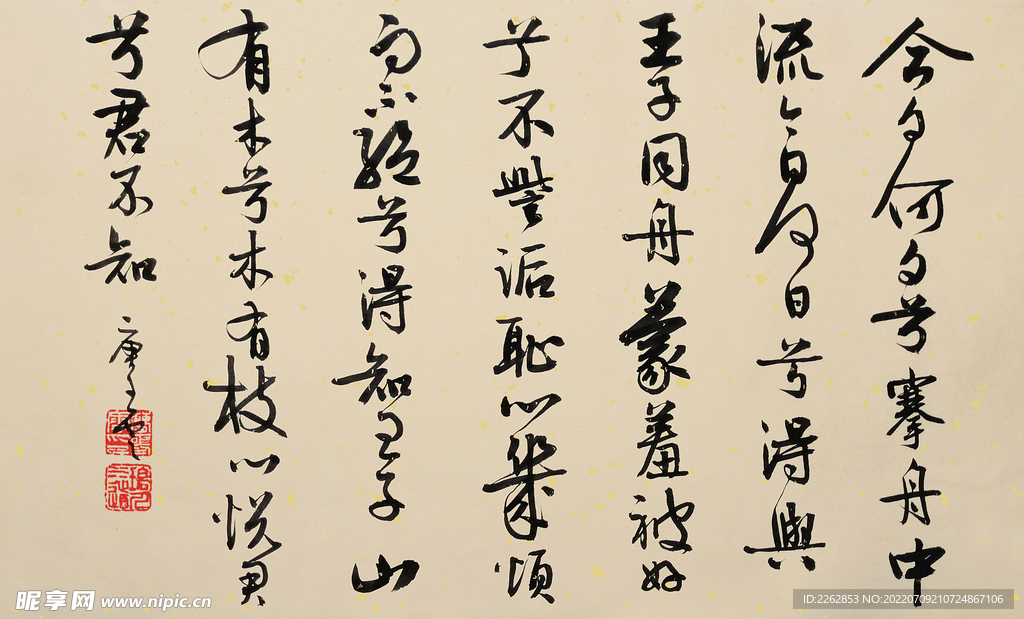 今夕何夕兮搴舟中
流今日何日兮得與
王子同舟蒙羞被好
兮不訾詬恥心幾煩
而不絕兮得知王子山
有木兮木有枝心悅君
兮君不知
昵享网 www.nipic.cn
ID:2262853 NO:20220709210724867106